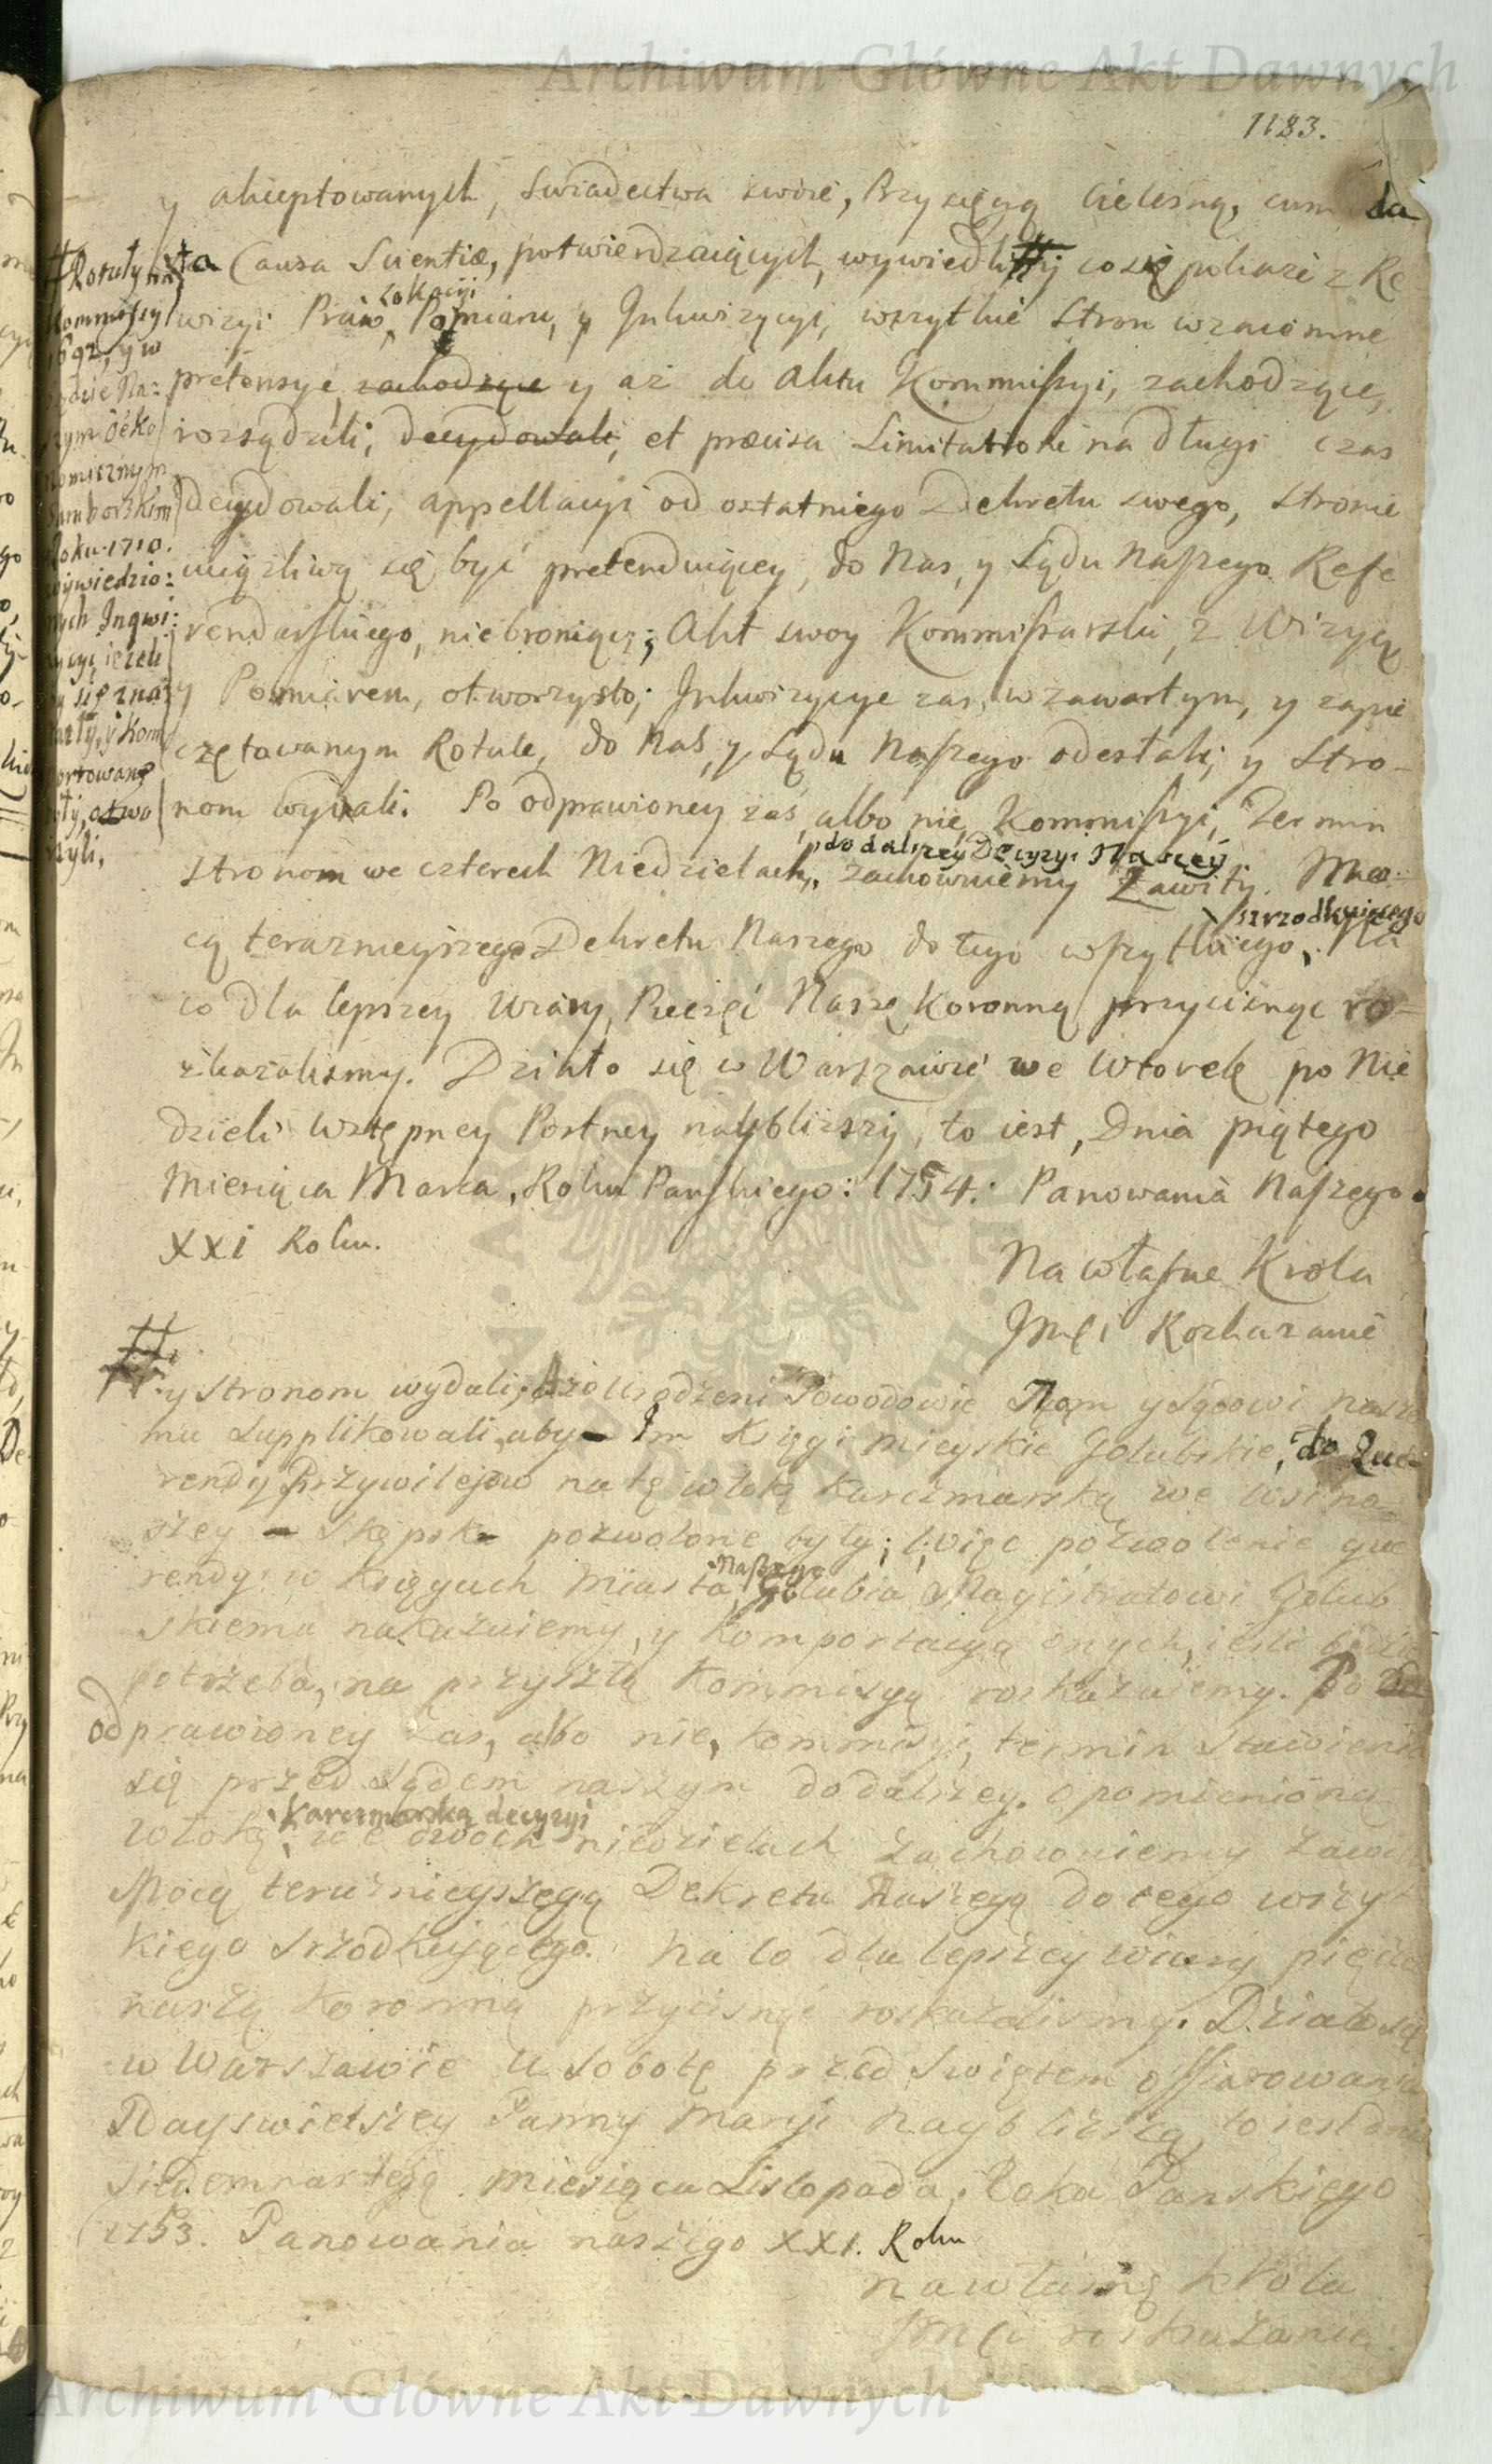 Archiwum Główne Akt Dawnych
1183.
y akceptowanych, swiadectwa swoie, Przysięgą cielesną, cum da
ta Causa Scientiæ, potwierdzaiących, wywiedli y co się pokaże z Re
wizyi Praw, Lokacyi Pomiaru, y Inkwizycyi, wszytkie Stron wzaiemne
pretensye zachodzące y aż do Aktu Kommissyi, zachodzące,
rozsądzili, decydowali, et præcisa Limitatione na długi czas
decydowali, appellacyi od ostatniego Dekretu swego, stronie
uciążliwą się być pretenduiącey, do Nas, y Sądu Naszego Refe
rendarskiego, niebroniąc; Akt swoy Kommissarski, z Wizyą
y Pomiarem, otworzysto; Inkwizycye zas, w zawartym, y zapie
czętowanym Rotule, do Nas, y Sądu Naszego odesłali, y Stro-
nom wydali. Po odprawioney zaś, albo nie, Kommissyi, Termin
Stronom we czterech Niedzielach, do dalszey Decyzyi Naszey zachowuiemy Zawity. Mo-
cą teraznieyszego Dekretu Naszego do tego wszytkiego szrzodkuiącego. Na
co dla lepszey Wiary, Pieczęć Naszę Koronną przycisnąc ro-
zkazalismy. Działo się w Warszawie we Wtorek po Nie
dzieli Wstępney Postney naybliższy, to iest, Dnia piątego
Miesiąca Marca, Roku Panskiego: 1754: Panowania Naszego
XXI Roku.
Na własne Krola
Jmci Rozkazanie
# Rotuły na
Kommissyi
1692, y w
Sądzie Na:
szym Oeko
nomicznym
Samborskim
Roku 1710.
wywiedzio:
nych Inqwi:
zycyi ieżeli
by się zna
lazły, y Kom
portowane
były, otwo
rzyli,
# y stronom wydali, A że Urodzeni Powodowie Nam y Sądowi nasze
mu supplikowali, aby Im Księgi mieyskie Golubskie, do Que
rendy Przywilejow na tę włokę karczmarską we wsi na
szey Skępsk pozwolone były; więc pozwolenie que
rendy w Księgach Miasta Naszego Golubia Magistratowi Golub
skiemu nakazuiemy, y komportacyą onych, ieśli będzie
potrzeba, na przyszłą Kommissyą roskazuiemy. Po
odprawioney zas, albo nie, kommissyi, termin stawienia
się przed Sądem naszym do dalszey o pomienioną
włokę karczmarską decyzyi we dwoch niedzielach zachowuiemy zawity
Mocą teraznieyszego Dekretu Naszego do tego wszyt
kiego srzodkuiącego. Na co dla lepszey wiary pięczęć
naszą Koronną przycisnąć roskazalismy. Działo się
w Warszawie w Sobotę przed Swiętem offiarowania
Nayswiętszey Panny Maryi naybliższą, to iest dnia
siedemnastego miesiąca Listopada, Roku Panskiego
1753. Panowania naszego XXI. Roku
na własne krola
Jmci roskazanie.
Archiwum Główne Akt Dawnych